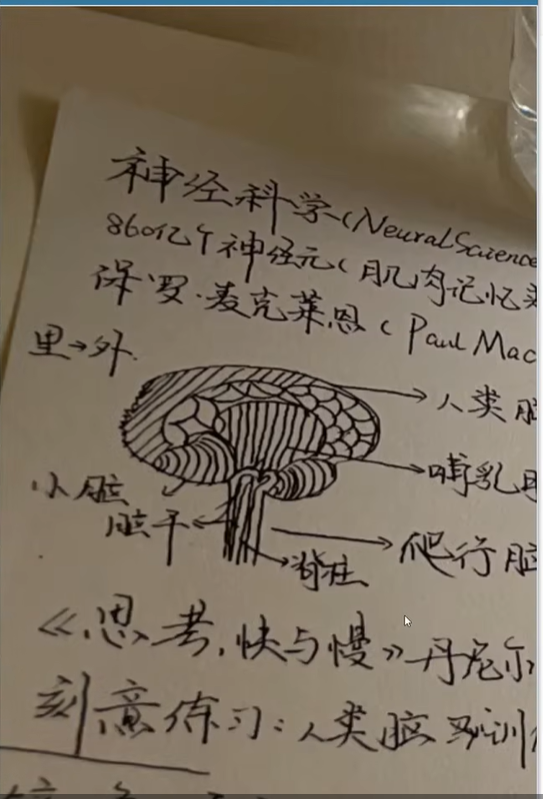 神经科学(Neural Science
860亿个神经元(肌肉记忆
保罗·麦克莱恩(Paul Mac
里→外
人类
小脑
哺乳
脑干
爬行脑
脊柱
《思考,快与慢》丹尼尔
刻意练习:人类脑 训